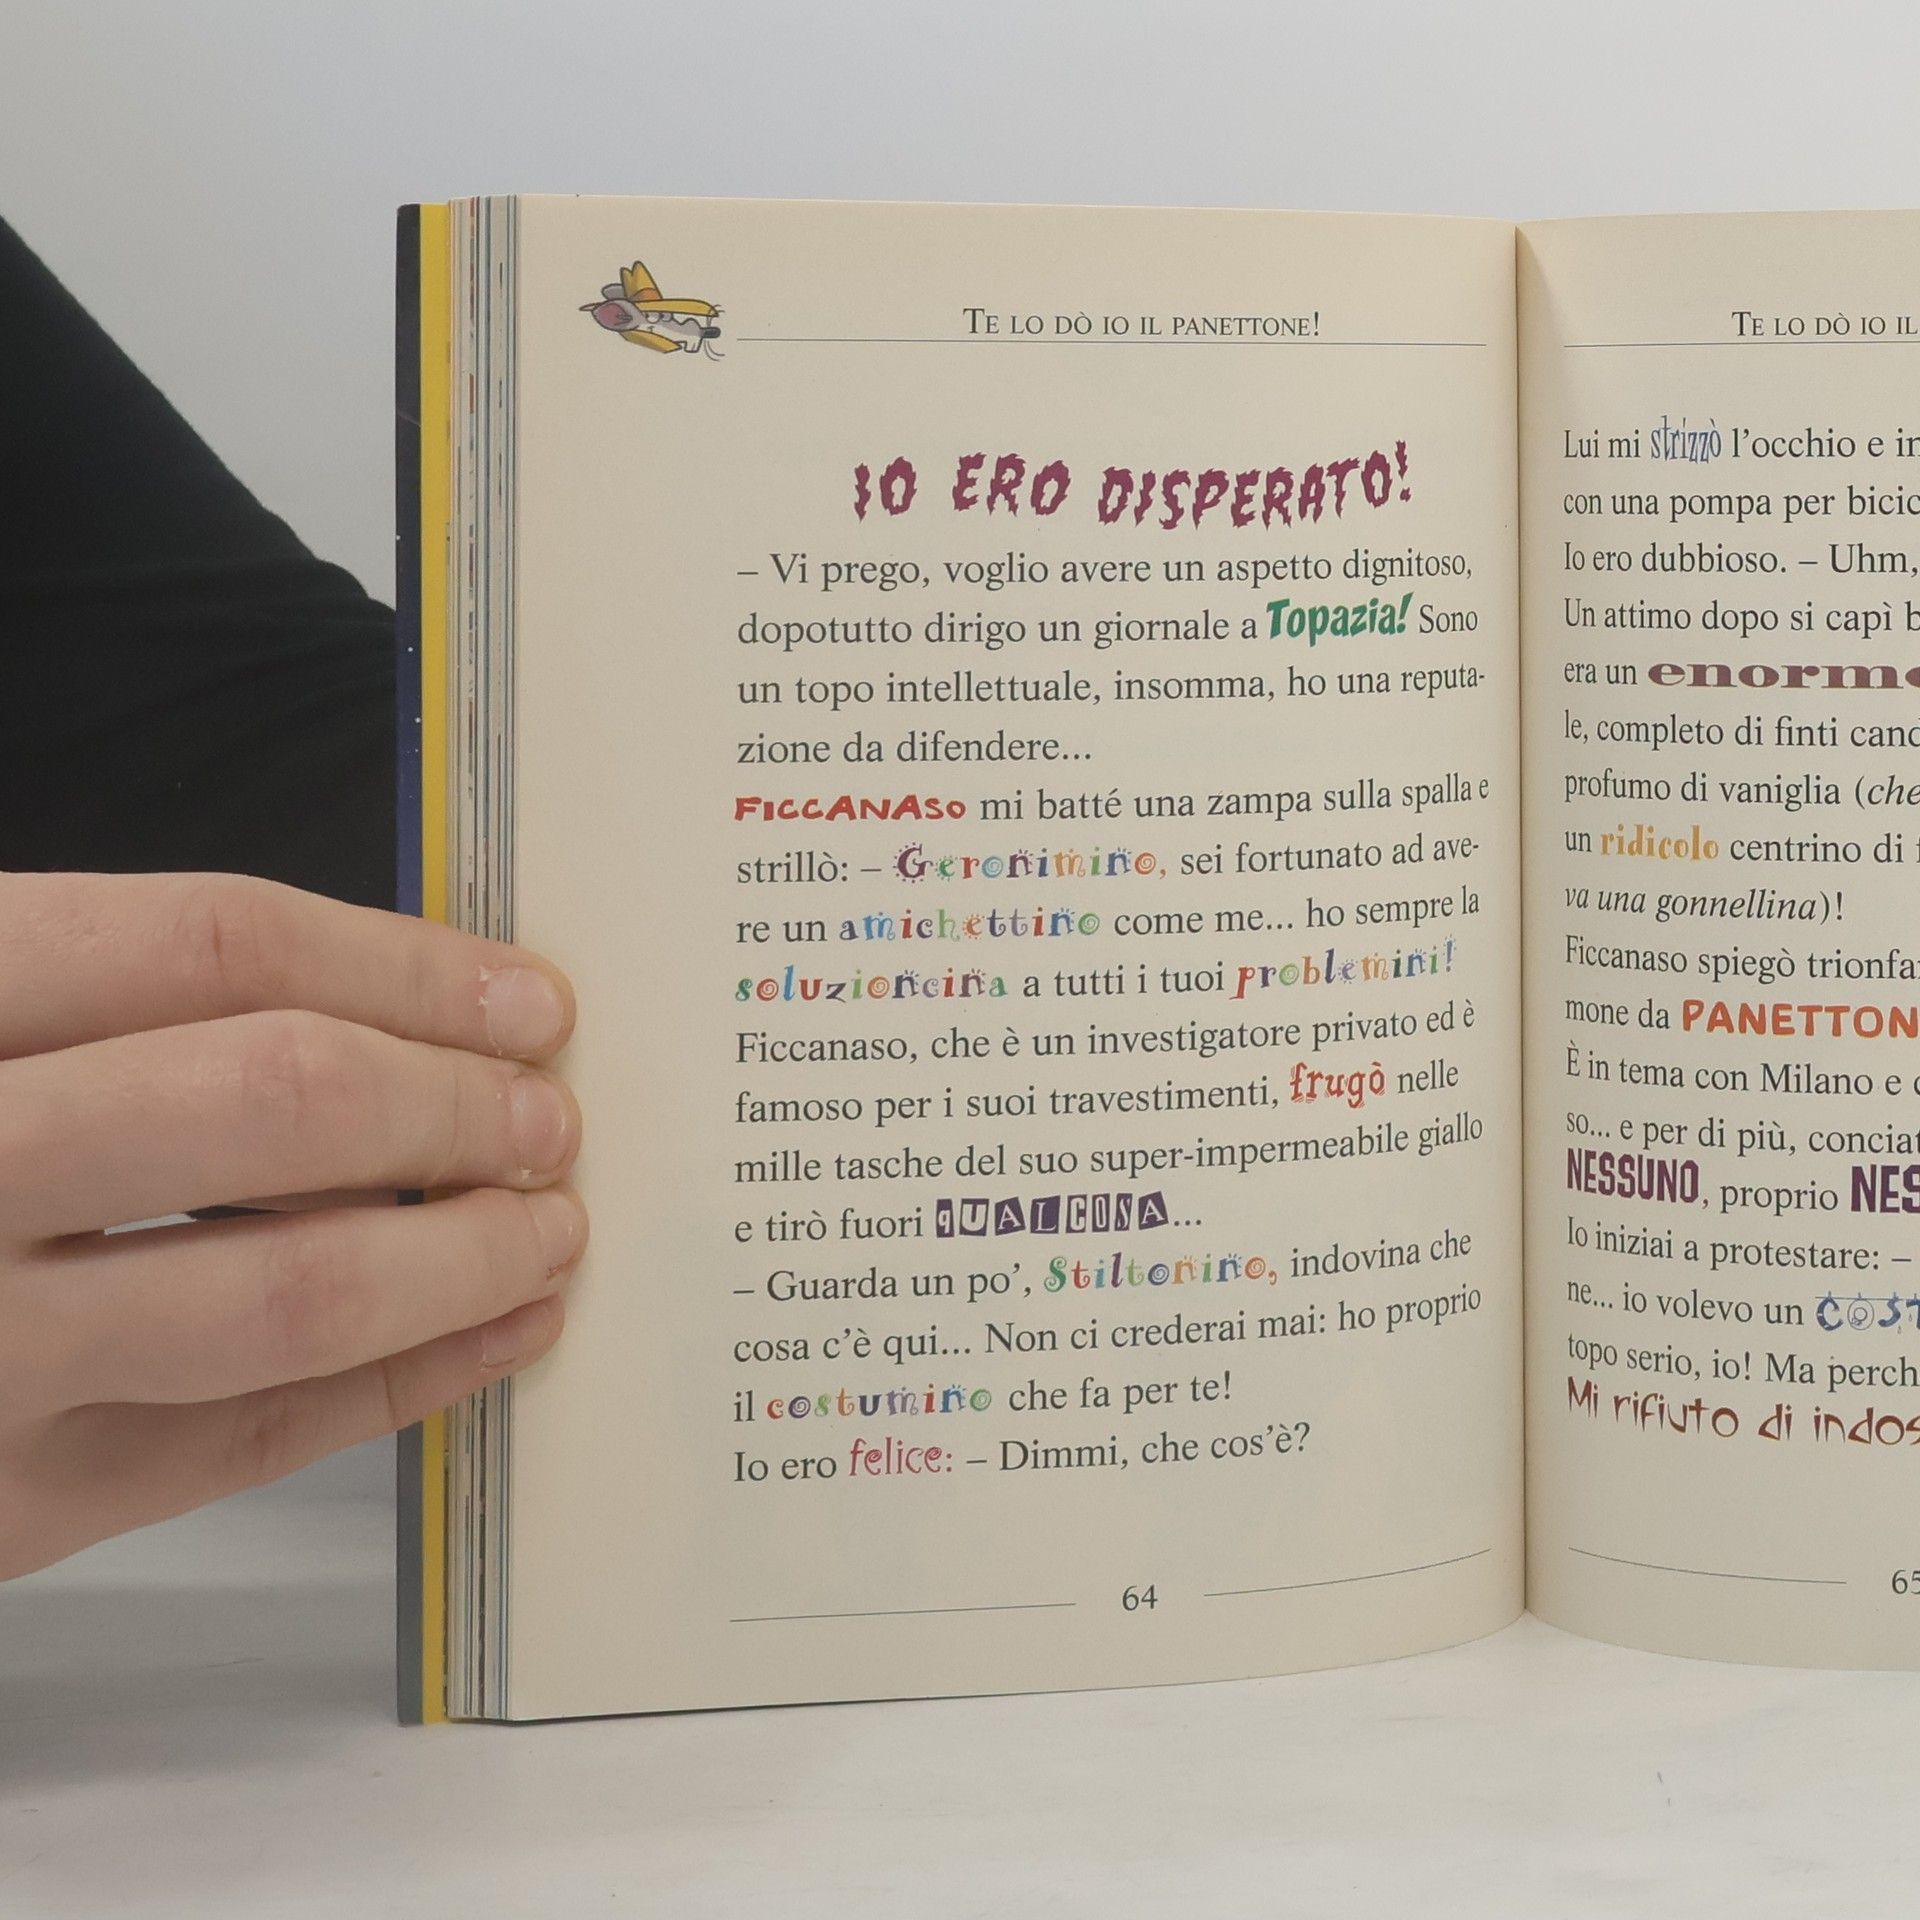 TE LO DÒ IO IL PANETTONE!
IO ERO DISPERATO!
– Vi prego, voglio avere un aspetto dignitoso,
dopotutto dirigo un giornale a Topazia! Sono
un topo intellettuale, insomma, ho una reputa-
zione da difendere...
FICCANASO mi batté una zampa sulla spalla e
strillò: – Geronimino, sei fortunato ad ave-
re un amichettino come me... ho sempre la
soluzioncina a tutti i tuoi problemini!
Ficcanaso, che è un investigatore privato ed è
famoso per i suoi travestimenti, frugò nelle
mille tasche del suo super-impermeabile giallo
e tirò fuori qUALCOSA...
– Guarda un po’, Stiltonino, indovina che
cosa c’è qui... Non ci crederai mai: ho proprio
il costumino che fa per te!
Io ero felice: – Dimmi, che cos’è?
64
TE LO DÒ IO IL
Lui mi strizzò l’occhio e
con una pompa per
Io ero dubbioso. – Uhm,
Un attimo dopo si capì
era un
le, completo di finti
profumo di vaniglia (che
un ridicolo centrino di
va una gonnellina)!
Ficcanaso spiegò
mone da
È in tema con Milano e
so... e per di più,
NESSUNO, proprio
Io iniziai a protestare: –
ne... io volevo un
topo serio, io! Ma
Mi rifiuto di
65